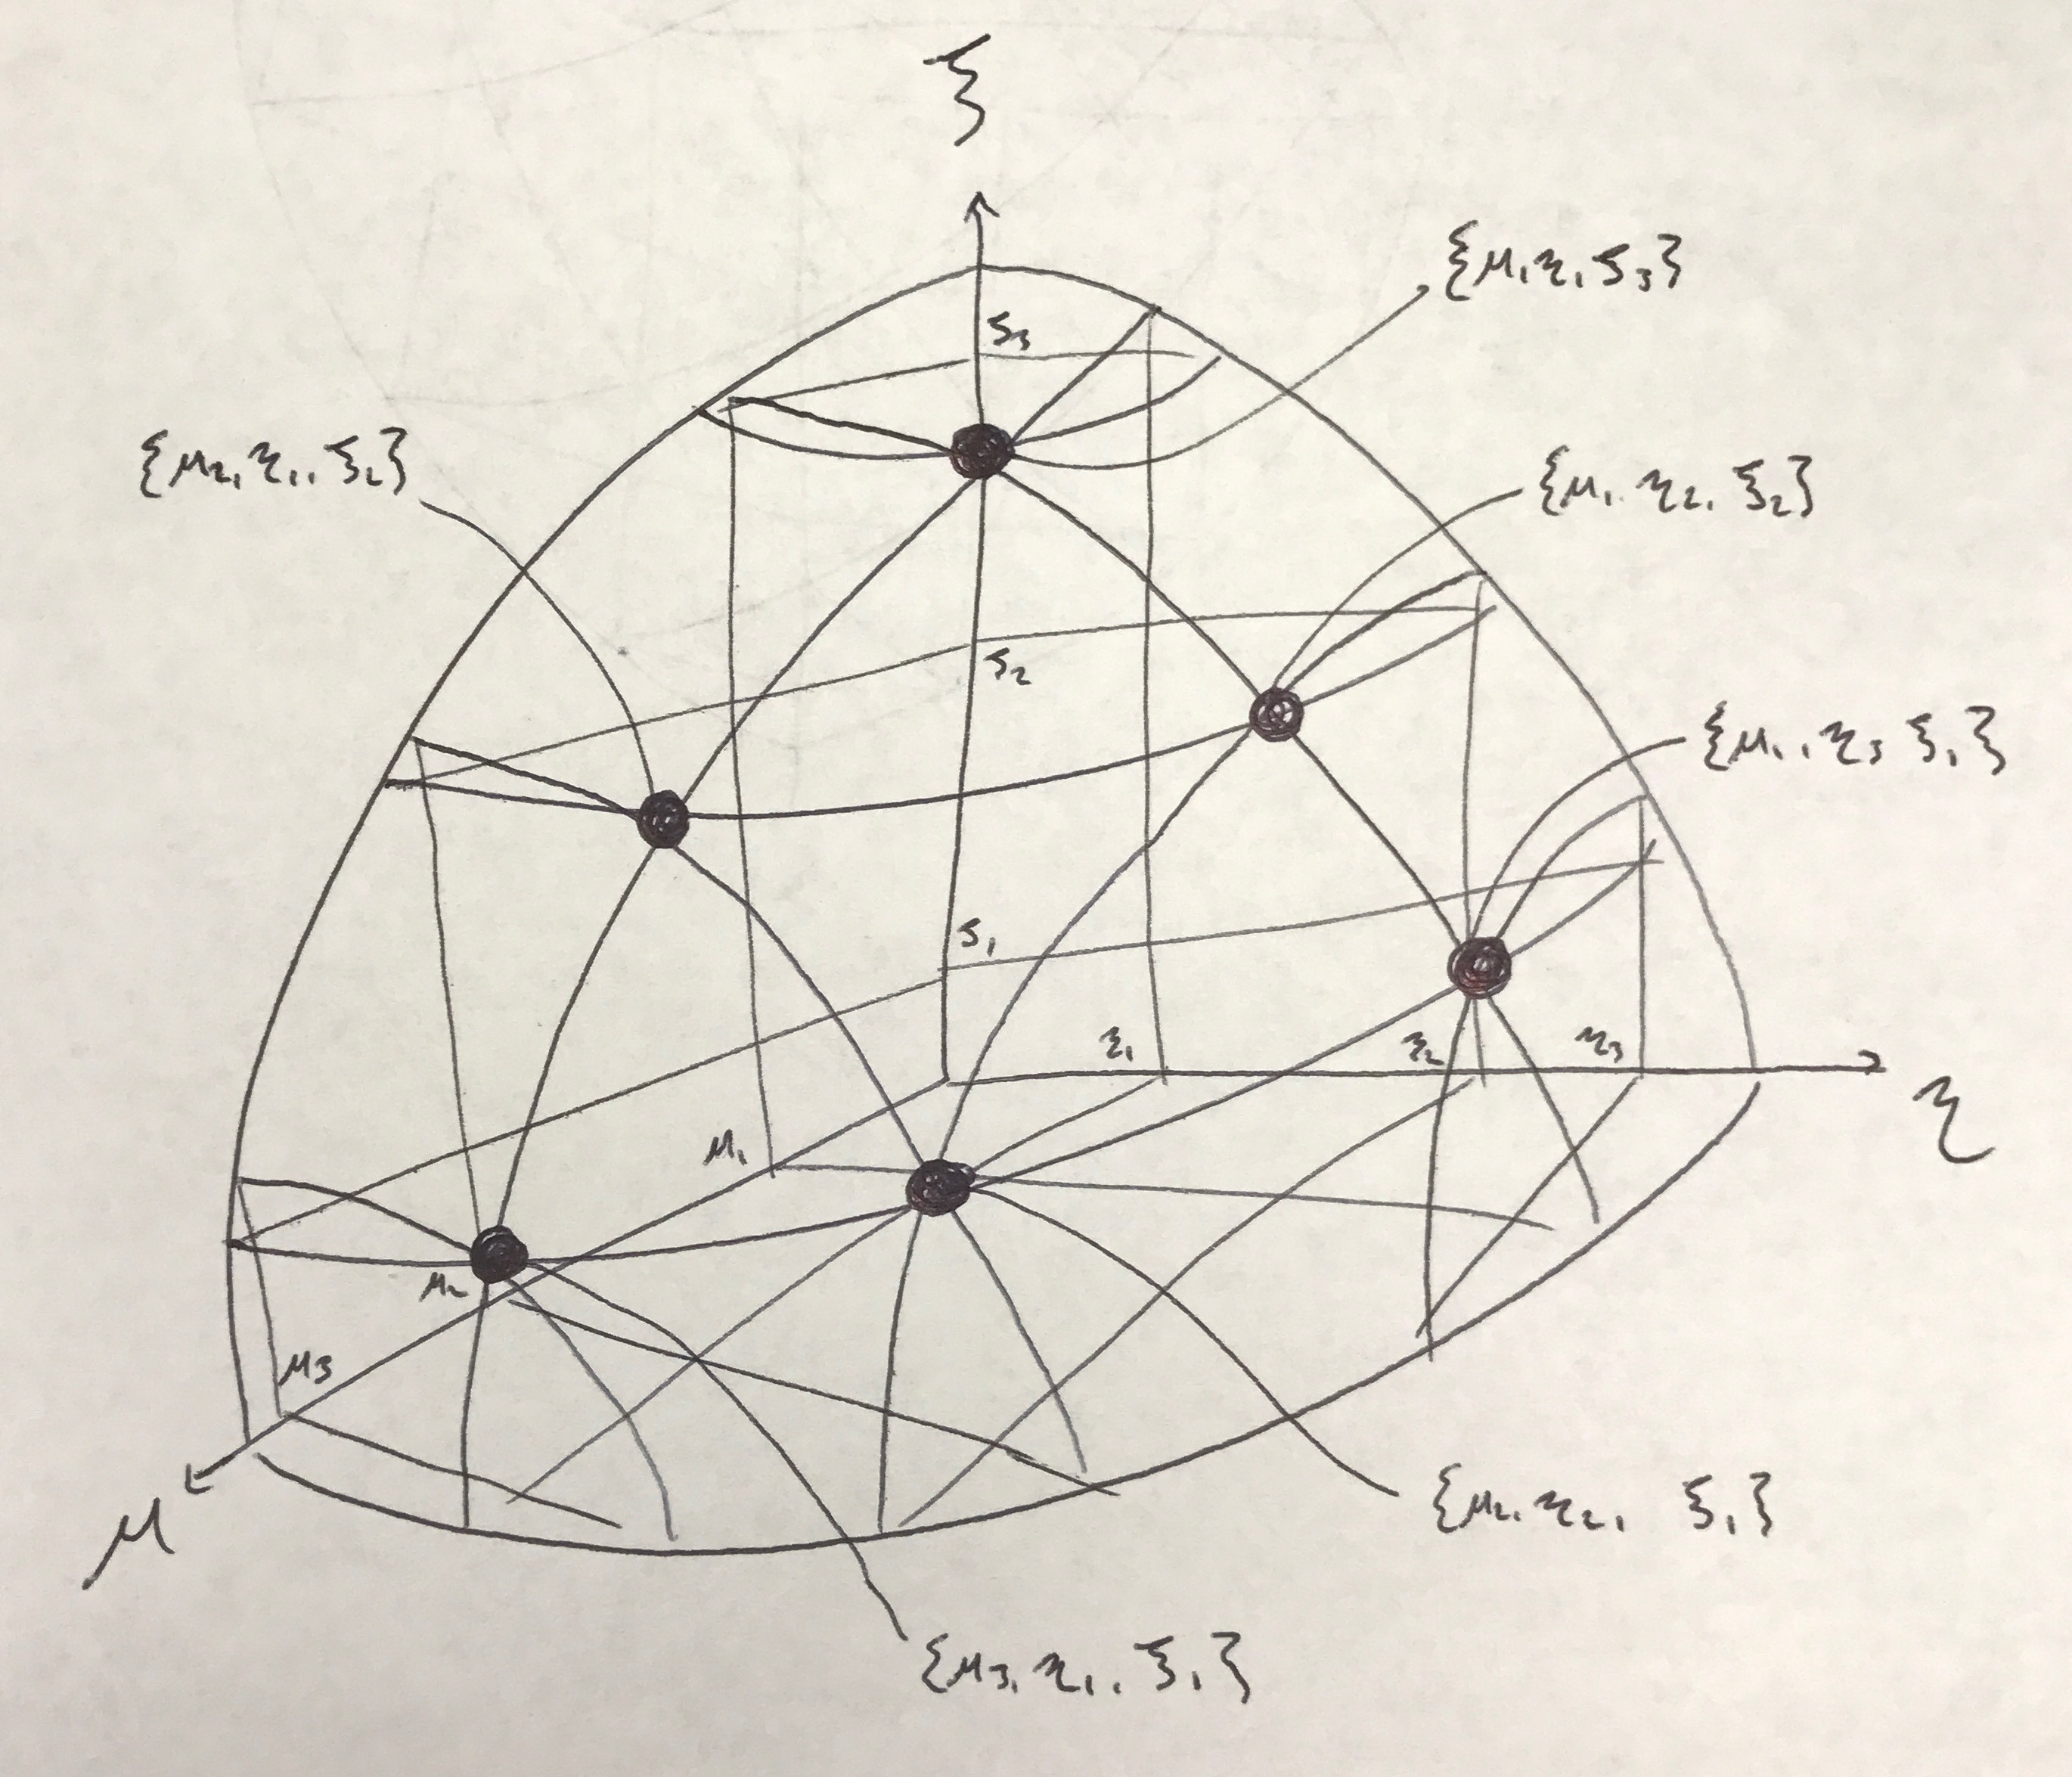 ξ
{μ, η, ξ₃}
ξ₃
{μ₂, η₁, ξ₂}
{μ₁, η₂, ξ₂}
ξ₂
{μ₁, η₃ ξ₁}
ξ₁
η₁ η₂ η₃
η
μ₁
μ₂
μ₃
μ
{μ₂, η₂, ξ₁}
{μ₃, η₁, ξ₁}